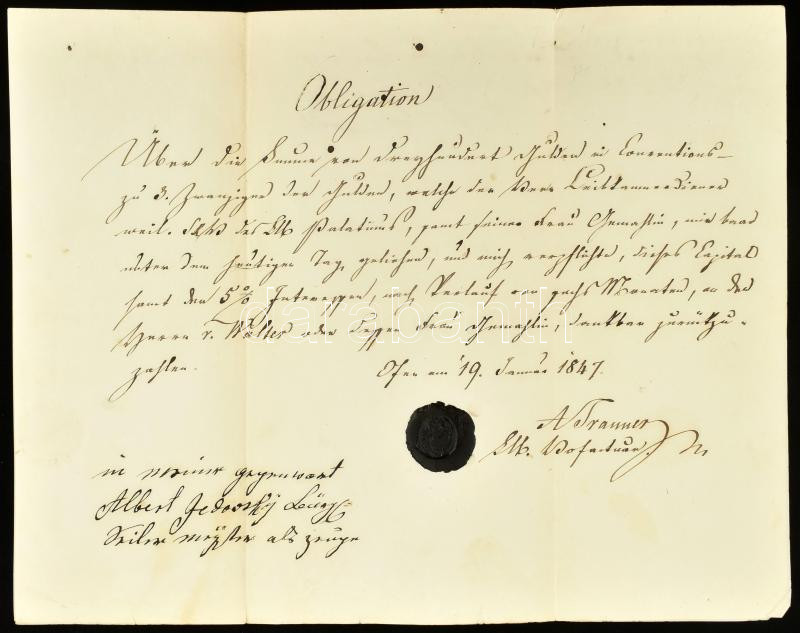 Obligation
Über die Summe von Dreyhundert Gulden in Conventions-
zu 3 Zwanziger den Gulden, welche der Herr Leibkammerdiener
weil. des Palatinus, samt seiner Frau Gemahlin, mir baar
unter dem heutigen Tag geliehen, und mich verpflichte, dieses Capital
samt den 5% Interessen, nach Verlauf von sechs Monaten, an den
Herrn v. Walter oder dessen Frau Gemahlin, dankbar zurückzu-
zahlen.
Ofen am 19. Januar 1847.
A Tranner
in meiner gegenwart
Albert Jedovszky Bürg.
Seiler meister als zeuge
darabanth